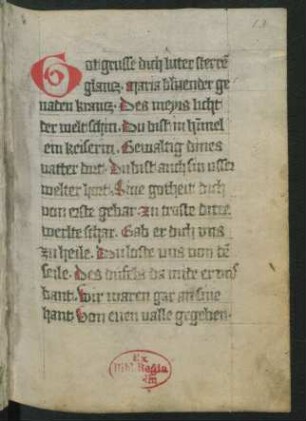 Got grusse dich luter sterrē
glantz. Maria bluender ge
naden krantz. Des meyis licht
der welt schin. Du bist in himel
ein keiserin. Gewaltig dines
vatter dirt. Du bist auch sin usser
welter hort. Sine gotheit dich
von erste gebar. Zu troste dirre
werlte schar. Gab er dich uns
zu heile. Du loste uns von dē
seile. Des tufels da mide er uns
bant. Wir waren gar an sine
hant Von euen valle gegeben.
Ex
Bibl. Regia